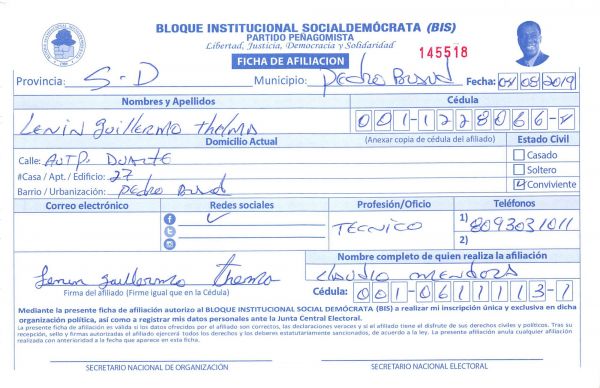 BLOQUE INSTITUCIONAL SOCIALDEMÓCRATA (BIS)
PARTIDO PEÑAGOMISTA
Libertad, Justicia, Democracia y Solidaridad
FICHA DE AFILIACION
145518
Provincia: S-D Municipio: Pedro Brand Fecha: 04/08/2019
Nombres y Apellidos Cédula
Lenin Guillermo Thelma 001-1228066-4
Domicilio Actual (Anexar copia de cédula del afiliado) Estado Civil
Calle: AUTP. DUARTE Casado
#Casa / Apt. / Edificio: 27 Soltero
Barrio / Urbanización: Pedro Brand Conviviente
Correo electrónico Redes sociales Profesión/Oficio Teléfonos
TECNICO 1) 8093031011
2)
Nombre completo de quien realiza la afiliación
Lenin Guillermo Thelma CLAUDIO MENDOZA
Firma del afiliado (Firme igual que en la Cédula) Cédula: 001-0611113-1
Mediante la presente ficha de afiliación autorizo al BLOQUE INSTITUCIONAL SOCIAL DEMÓCRATA (BIS) a realizar mi inscripción única y exclusiva en dicha
organización política, así como a registrar mis datos personales ante la Junta Central Electoral.
La presente ficha de afiliación es válida si los datos ofrecidos por el afiliado son correctos, las declaraciones veraces y si el afiliado tiene el disfrute de sus derechos civiles y políticos. Tras su
recepción, sello y firmas autorizadas el afiliado ejercerá todos los derechos y los deberes estatutariamente sancionados, de acuerdo a la ley. La presente afiliación anula cualquier afiliación
realizada con anterioridad a la fecha que aparece en esta ficha.
SECRETARIO NACIONAL DE ORGANIZACIÓN SECRETARIO NACIONAL ELECTORAL